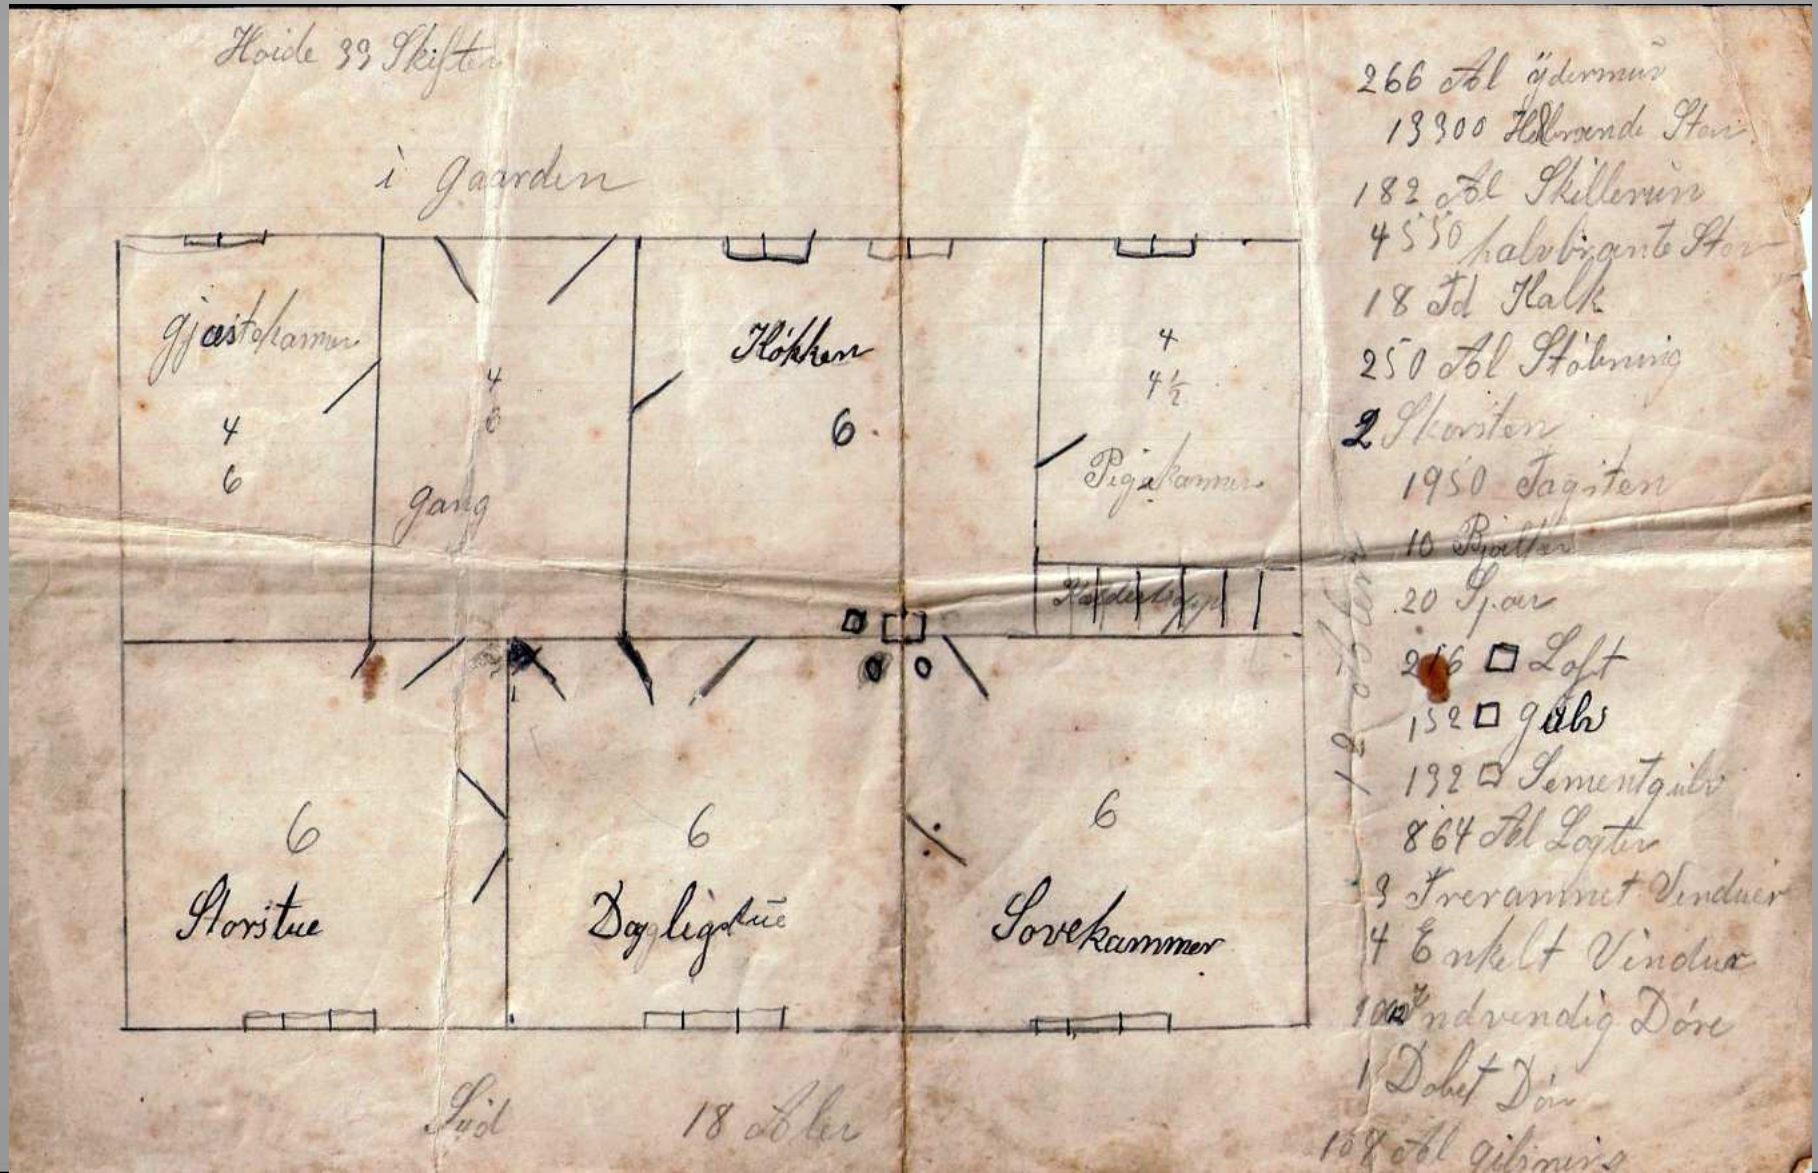 Hoide 33 Skifter
i Gaarden
gjæstekammer
4
6
4
6
Gang
Kökken
6
4
4 ½
Pigekammer
Kældertrapp
6
Storstue
6
Dagligstue
6
Sovekammer
Süd
18 Aler
12
266 Al ydermür
13300 Hlbrænde Sten
182 Al Skillerüm
4550 halvbrænte Sten
18 Td Kalk
250 Al Stöbning
2 Skorsten
1950 Tagsten
10 Bjælker
20 Spær
□ Loft
152 □ gülv
132 □ Sementgülv
864 Al Lægter
3 Trerammet Vinduer
4 Enkelt Vinduer
Indvendig Döre
1 Dobet Dör
Al